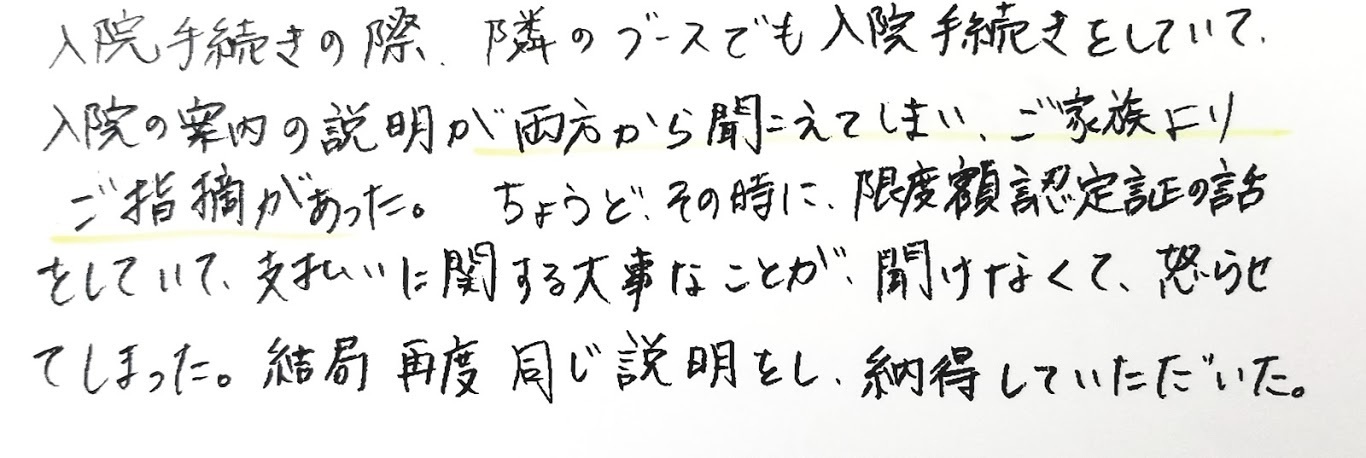 入院手続きの際、隣のブースでも入院手続きをしていて、
入院の案内の説明が両方から聞こえてしまい、ご家族より
ご指摘があった。ちょうど、その時に、限度額認定証の話
をしていて、支払いに関する大事なことが、聞けなくて、怒らせ
てしまった。結局再度同じ説明をし、納得していただいた。